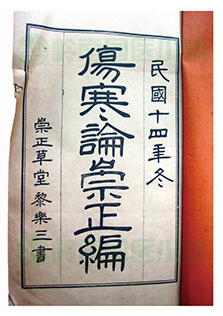 民國十四年冬
傷寒論崇正編
崇正草堂黎樂三書